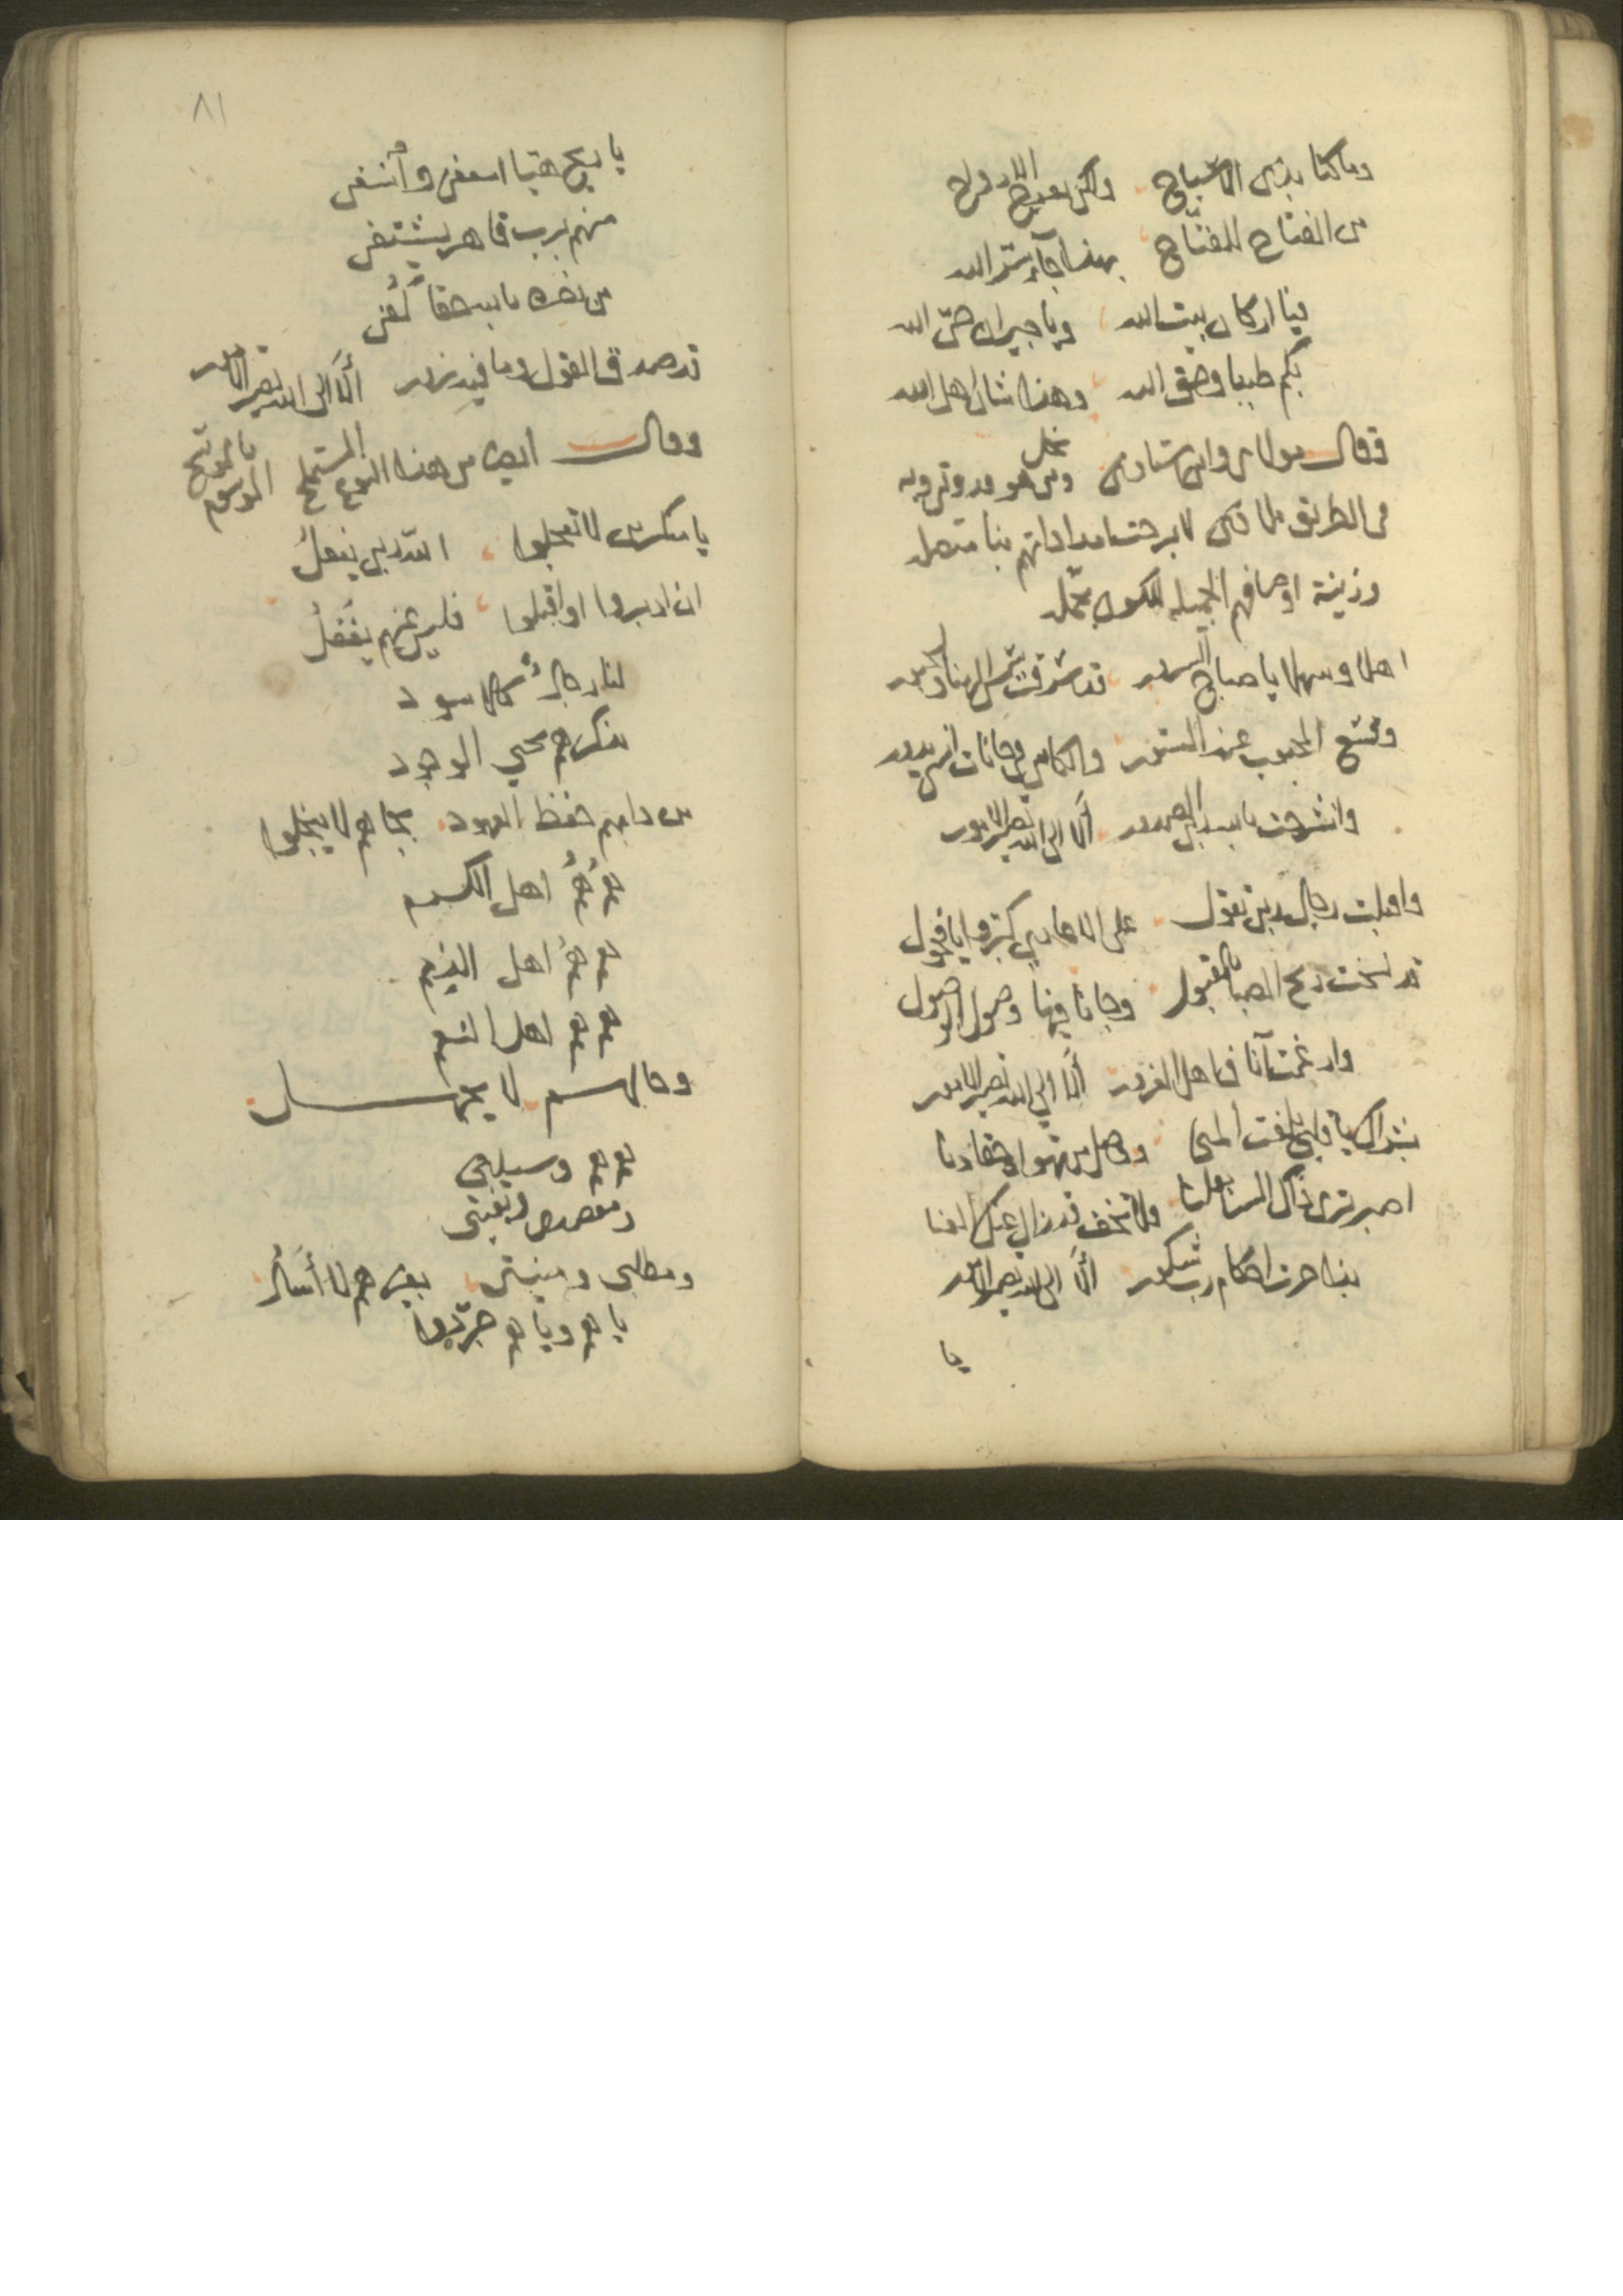 وما كنا بذي الاشباح ولكن بعد الارواح
من الفتاح للفتاح بهذا جاء سر الله
فيا اركان بيت الله ويا جيران حي الله
بكم طبنا وحق الله وهذا شان اهل الله
وقال مولاي واستنادي نجل ومن هو قدوتي وبه
في الطريق ملاذي لا برحت امداداتهم بنا متصله
وزينة اوصافهم الجميله للكون مجمله
اهلا وسهلا يا صباح السرور قد شرقت شمس الهنا
وشعشع المحبوب عند الستور والكاس في حانات انسي يدور
وانشرحت بالله الصدور ألا الى الله تصير الامور
واقبلت رجال ربي تقول على الاعادي كبروا يا فحول
قد نفحت ريح الصبا بالقبول وجانا فيها وصول الوصول
وارغمت آناف اهل الغرور ألا الى الله تصير الامور
بشراك يا قلبي بلغت المنى وصل من تهواه حقا دنا
اصبر ترى ذاك السنا معلنا ولا تخف قد زال عنك العنا
بذا جرت احكام رب شكور ألا الى الله تصير الامور
يا
٨١
يا ريح هيا اسعفي وأنسفي
منهم برب قاهر يشتفي
من نصره بالله حقا كفي
قد صدق القول وما فيه زور ألا الى الله تصير الامور
وقال ايضا من هذا النوع المستملح الموسوم بالموشح
يا منكرين لا تعجلوا الله ربي يفعل
ان ادبروا او اقبلوا فليس عنهم يغفل
لنا رجال كالاسود
بذكرهم يحيى الوجود
من دابهم حفظ العهود بجاههم لا يبخلوا
هم هم اهل الكرم
هم هم اهل الذمم
هم هم اهل الشيم
وجالهم لا يجهل
هم هم وسيلتي
ومقصدي وبغيتي
ومطلبي ومنيتي بغيرهم لا أسأل
ياهم وياهم جردوا